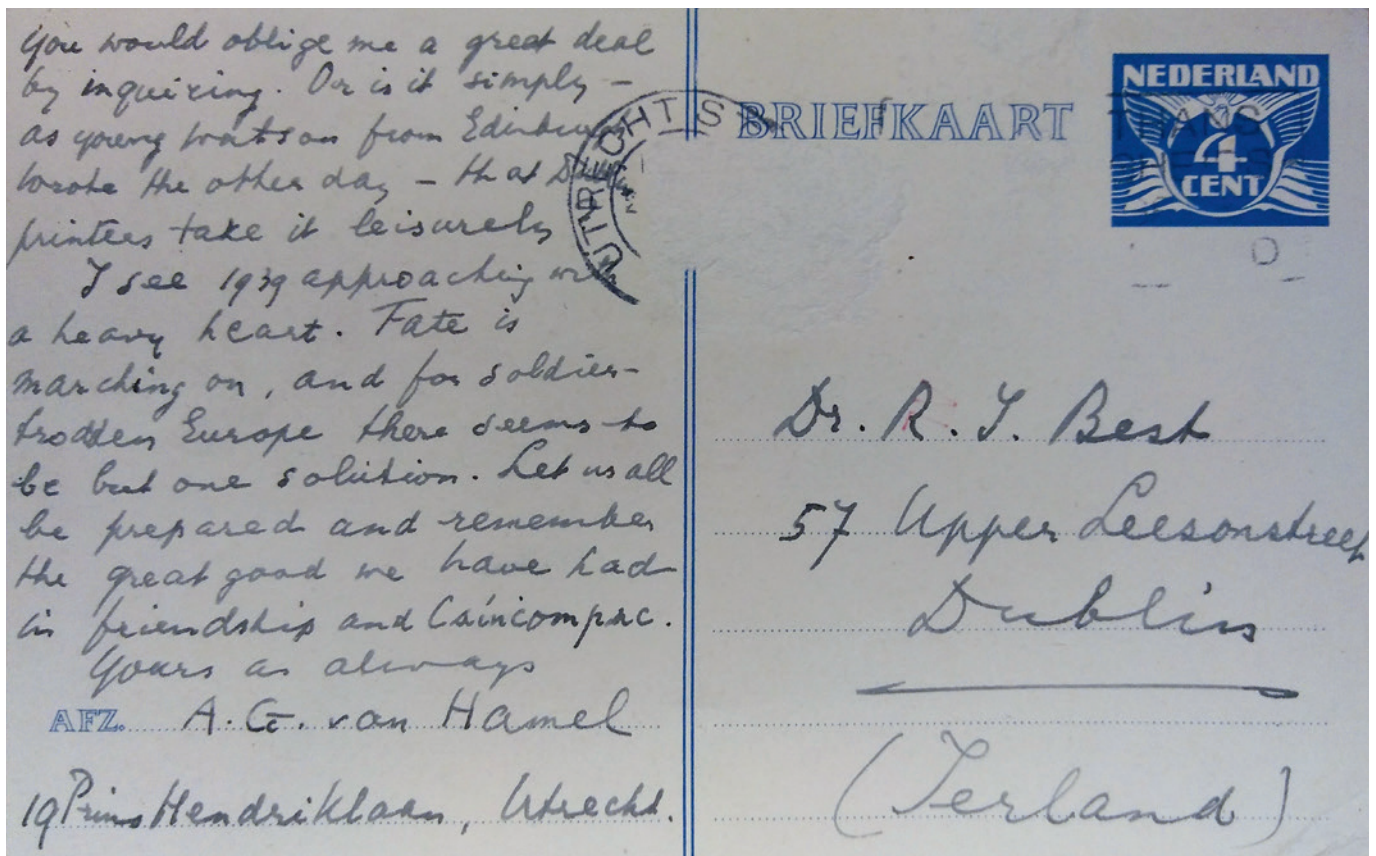 you would oblige me a great deal
by inquiring. Or is it simply –
as young Watson from Edinburgh
wrote the other day – that
printers take it leisurely
I see 1939 approaching
a heavy heart. Fate is
marching on, and for soldier-
trodden Europe there seems to
be but one solution. Let us all
be prepared and remember
the great good we have had
in friendship and Caíncomrac.
Yours as always
AFZ. A. G. van Hamel
19 Prins Hendriklaan, Utrecht.
UTRECHT S
BRIEFKAART
NEDERLAND
4
CENT
Dr. R. I. Best
57 Upper Leesonstreet
Dublin
(Ierland)